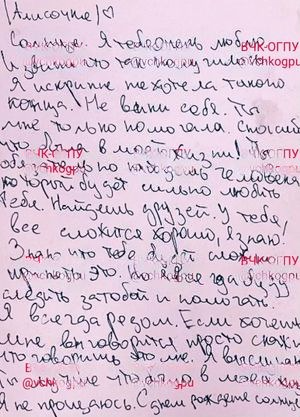 (Алисочке)♡
Солнце. Я тебя очень люблю
и что так
Я искрине не хотела такого
конца! Не вини себя. Ты
мне только помогала. Спасибо
что в моей жизни! Ты
человека
который будет сильно любить
тебя. Найдешь друзей. У тебя
все сложится хорошо, я знаю!
Знаю что тебе будет
принять это. Но я все
следить за тобой и помогать.
Я всегда рядом. Если хочешь
мне выговорится просто скажи
что говоришь это мне. Я
что в моей
я не прощаюсь. С днем рождения солнце
ВЧК-ОГПУ
@vchkogpu
ВЧК-ОГПУ
@vchkogpu
ВЧК-ОГПУ
@vchkogpu